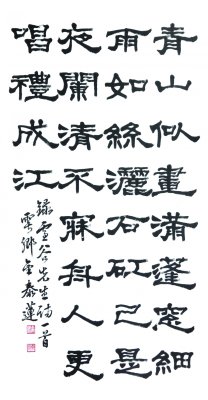 青山似畫滿蓬窓細
雨如絲灑石矼已是
夜闌清不寐舟人更
唱禮成江
錄雪谷先生詩一首
金泰蓮